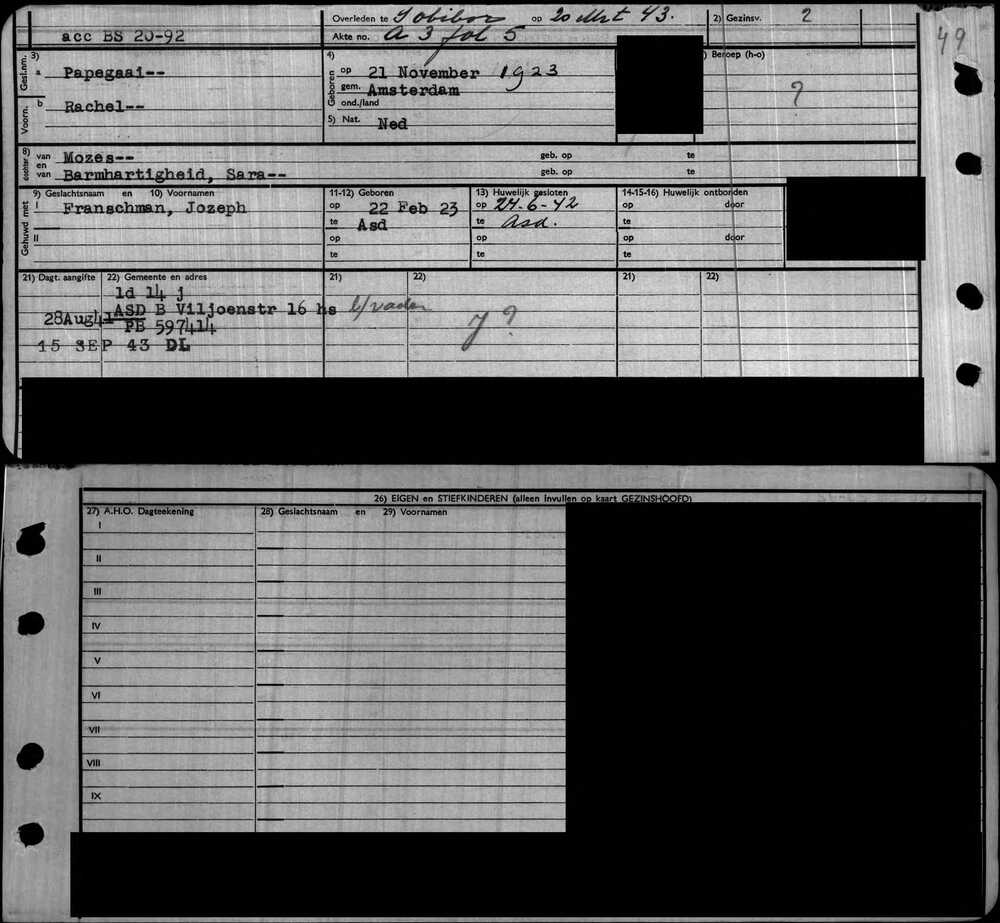 Overleden te Sobibor op 20 Mrt 43. 2) Gezinsv. 2
acc BS 20-92 Akte no. A 3 fol 5
49
3) Gesl.nm. a Papegaai-- 4) Geboren op 21 November 1923 Beroep (h-o)
gem. Amsterdam
Voorn. b Rachel-- ond./land ?
5) Nat. Ned
8) dochter van Mozes-- geb. op te
en
van Barmhartigheid, Sara-- geb. op te
9) Geslachtsnaam en 10) Voornamen 11-12) Geboren 13) Huwelijk gesloten 14-15-16) Huwelijk ontbonden
Gehuwd met I Franschman, Jozeph op 22 Feb 23 op 24-6-42 op door
te Asd te Asd. te
II op op op door
te te te
21) Dagt. aangifte 22) Gemeente en adres 21) 22) 21) 22)
ld 14 j
28Aug41 ASD B Viljoenstr 16 hs b/vader
PB 597414 J ?
15 SEP 43 DL
26) EIGEN en STIEFKINDEREN (alleen invullen op kaart GEZINSHOOFD)
27) A.H.O. Dagteekening 28) Geslachtsnaam en 29) Voornamen
I
II
III
IV
V
VI
VII
VIII
IX